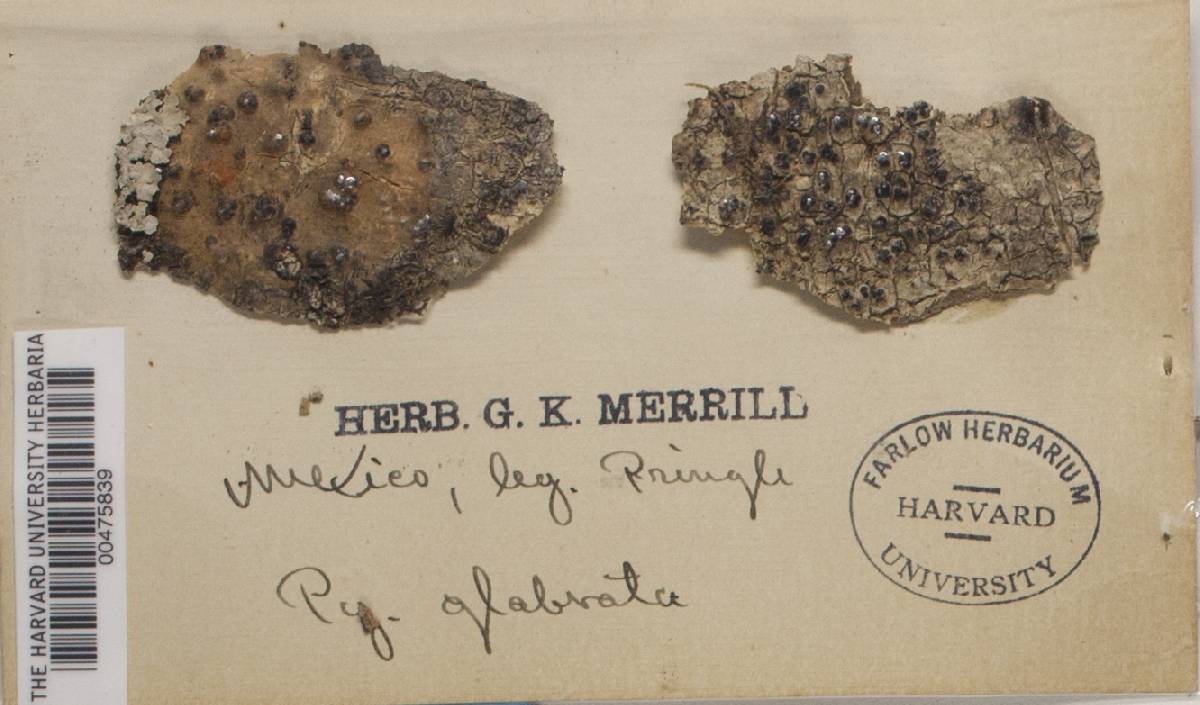 HERB. G. K. MERRILL
Mexico, leg. Pringle
Py. glabrata
FARLOW HERBARIUM
HARVARD
UNIVERSITY
THE HARVARD UNIVERSITY HERBARIA
00475839